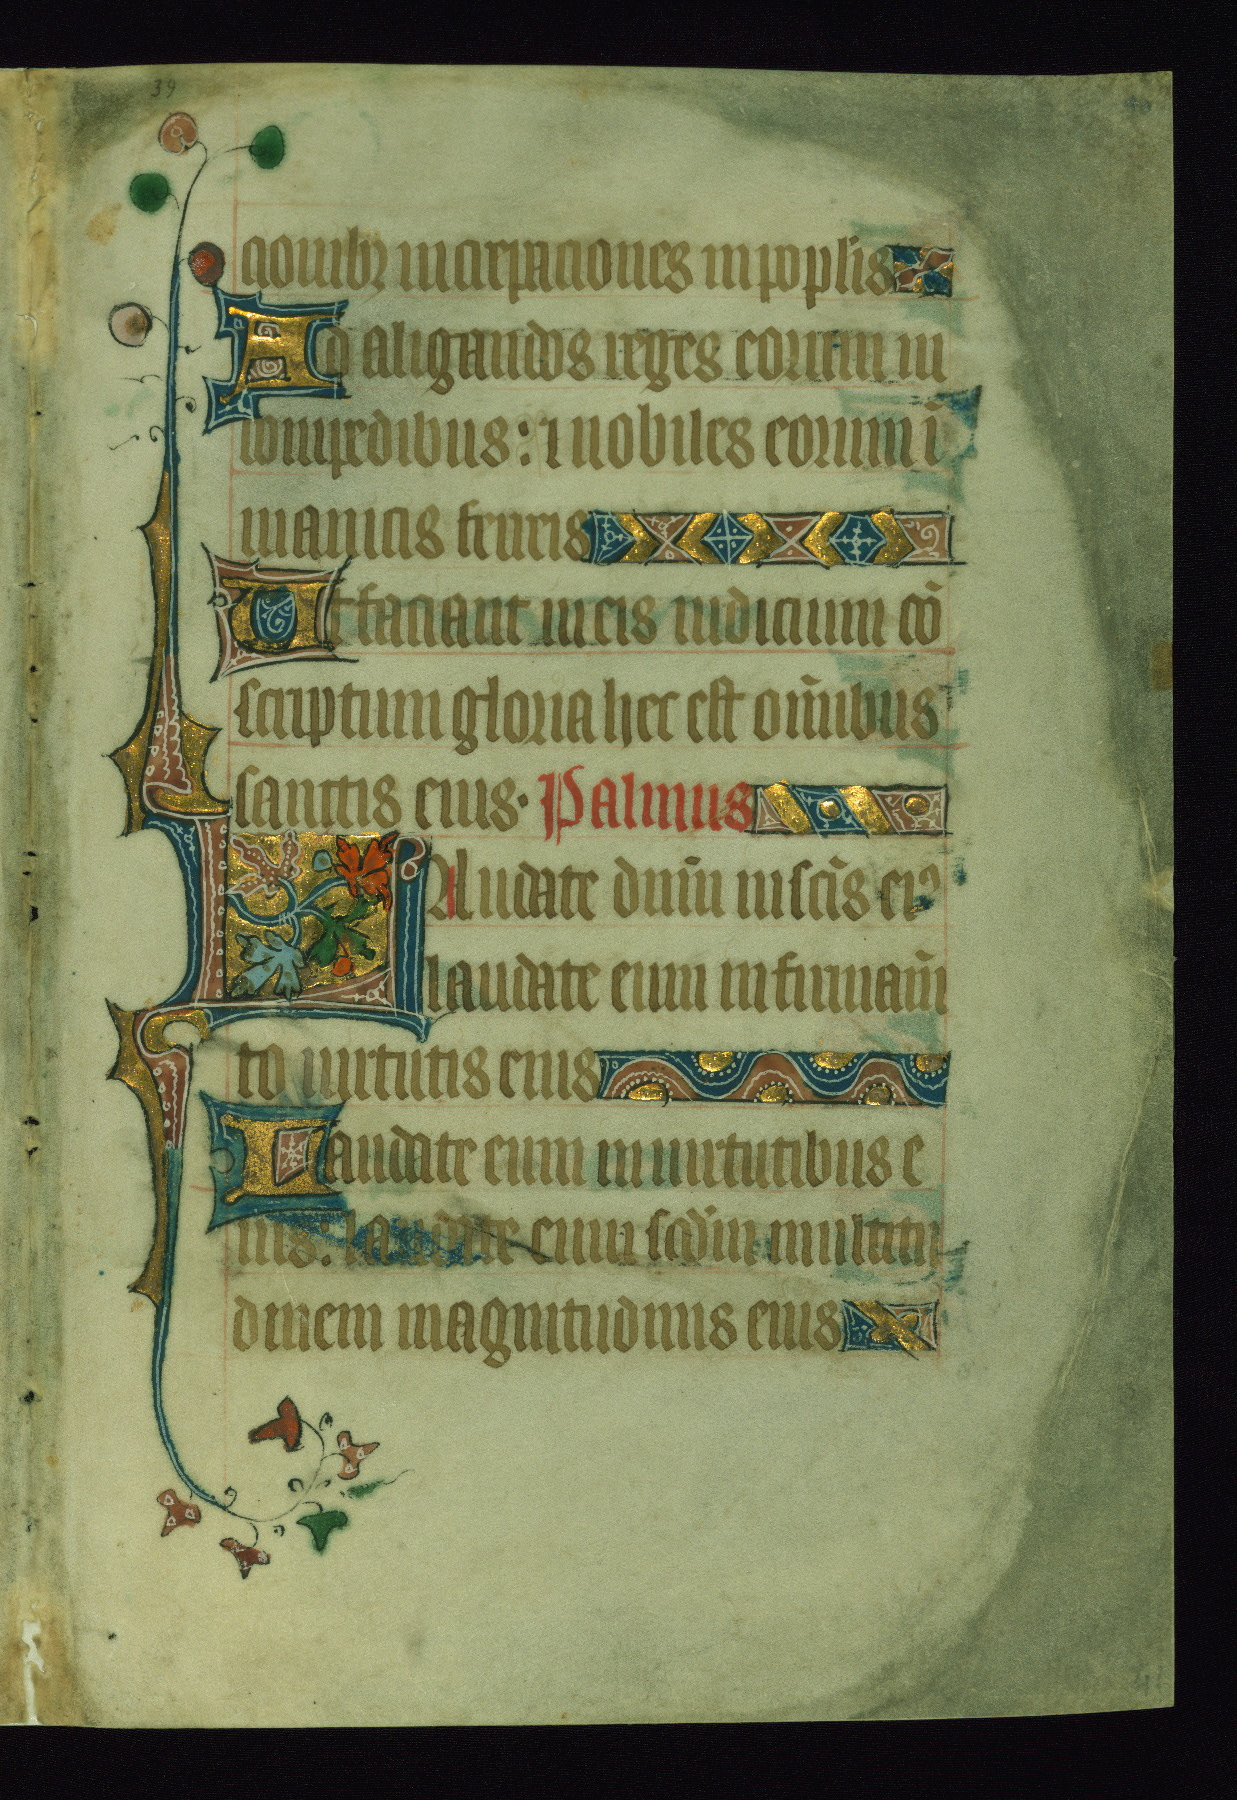 39
cionibꝫ increpaciones in poplis
Ad aligandos reges eorum in
compedibus: ⁊ nobiles eorum ī
manicis ferreis
Ut faciant in eis iudicium cō
scriptum gloria hec est om̄ibus
sanctis eius· Psalmus
LAudate dn̄m in scīs eiꝰ
laudate eum in firmam̄
to uirtutis eius
Laudate eum in uirtutibus e
ius: laudate eum scd̄m multitu
dinem magnitudinis eius